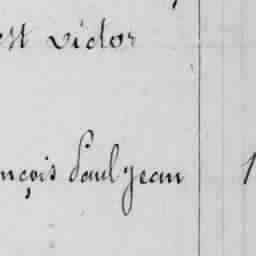 est victor
nçois Paul Jean 1